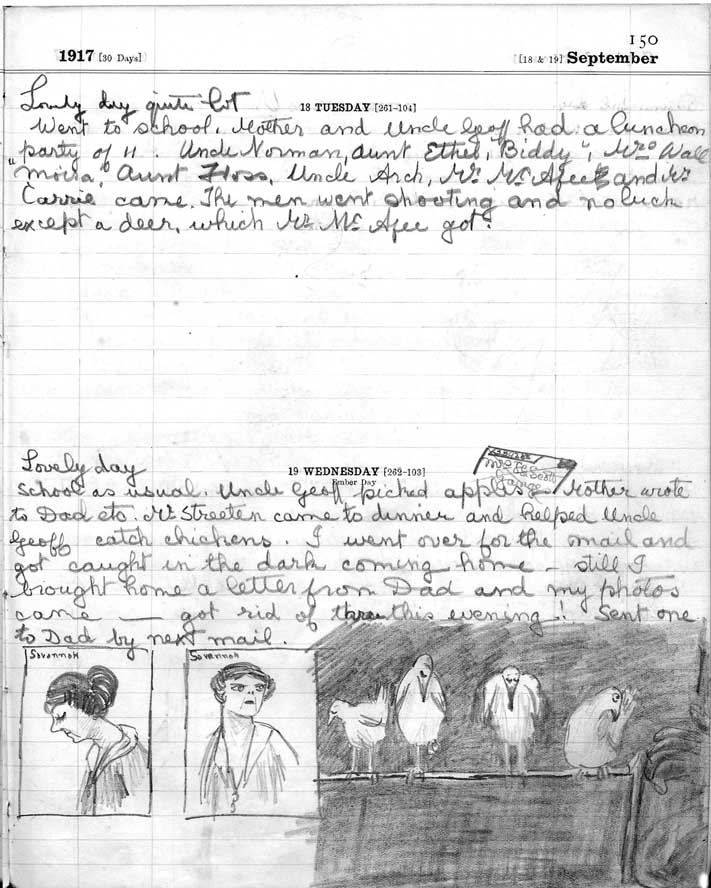 150
1917 [30 Days] [18 & 19] September
Lovely day quite hot
18 TUESDAY [261-104]
Went to school. Mother and Uncle Geoff had a luncheon
party of 11. Uncle Norman, Aunt Ethel, "Biddy", Mrs Wall
"Moira," Aunt Floss, Uncle Arch, Mr Mc Afee and Mr
Carrie came. The men went shooting and no luck
except a deer, which Mr Mc Afee got.
Lovely day
19 WEDNESDAY [262-103]
Ember Day
School as usual. Uncle Geoff picked apples. Mother wrote
to Dad etc. Mr Streeten came to dinner and helped Uncle
Geoff catch chickens. I went over for the mail and
got caught in the dark coming home – still I
brought home a letter from Dad and my photos
came — got rid of three this evening!! Sent one
to Dad by next mail.
Savannah Savannah